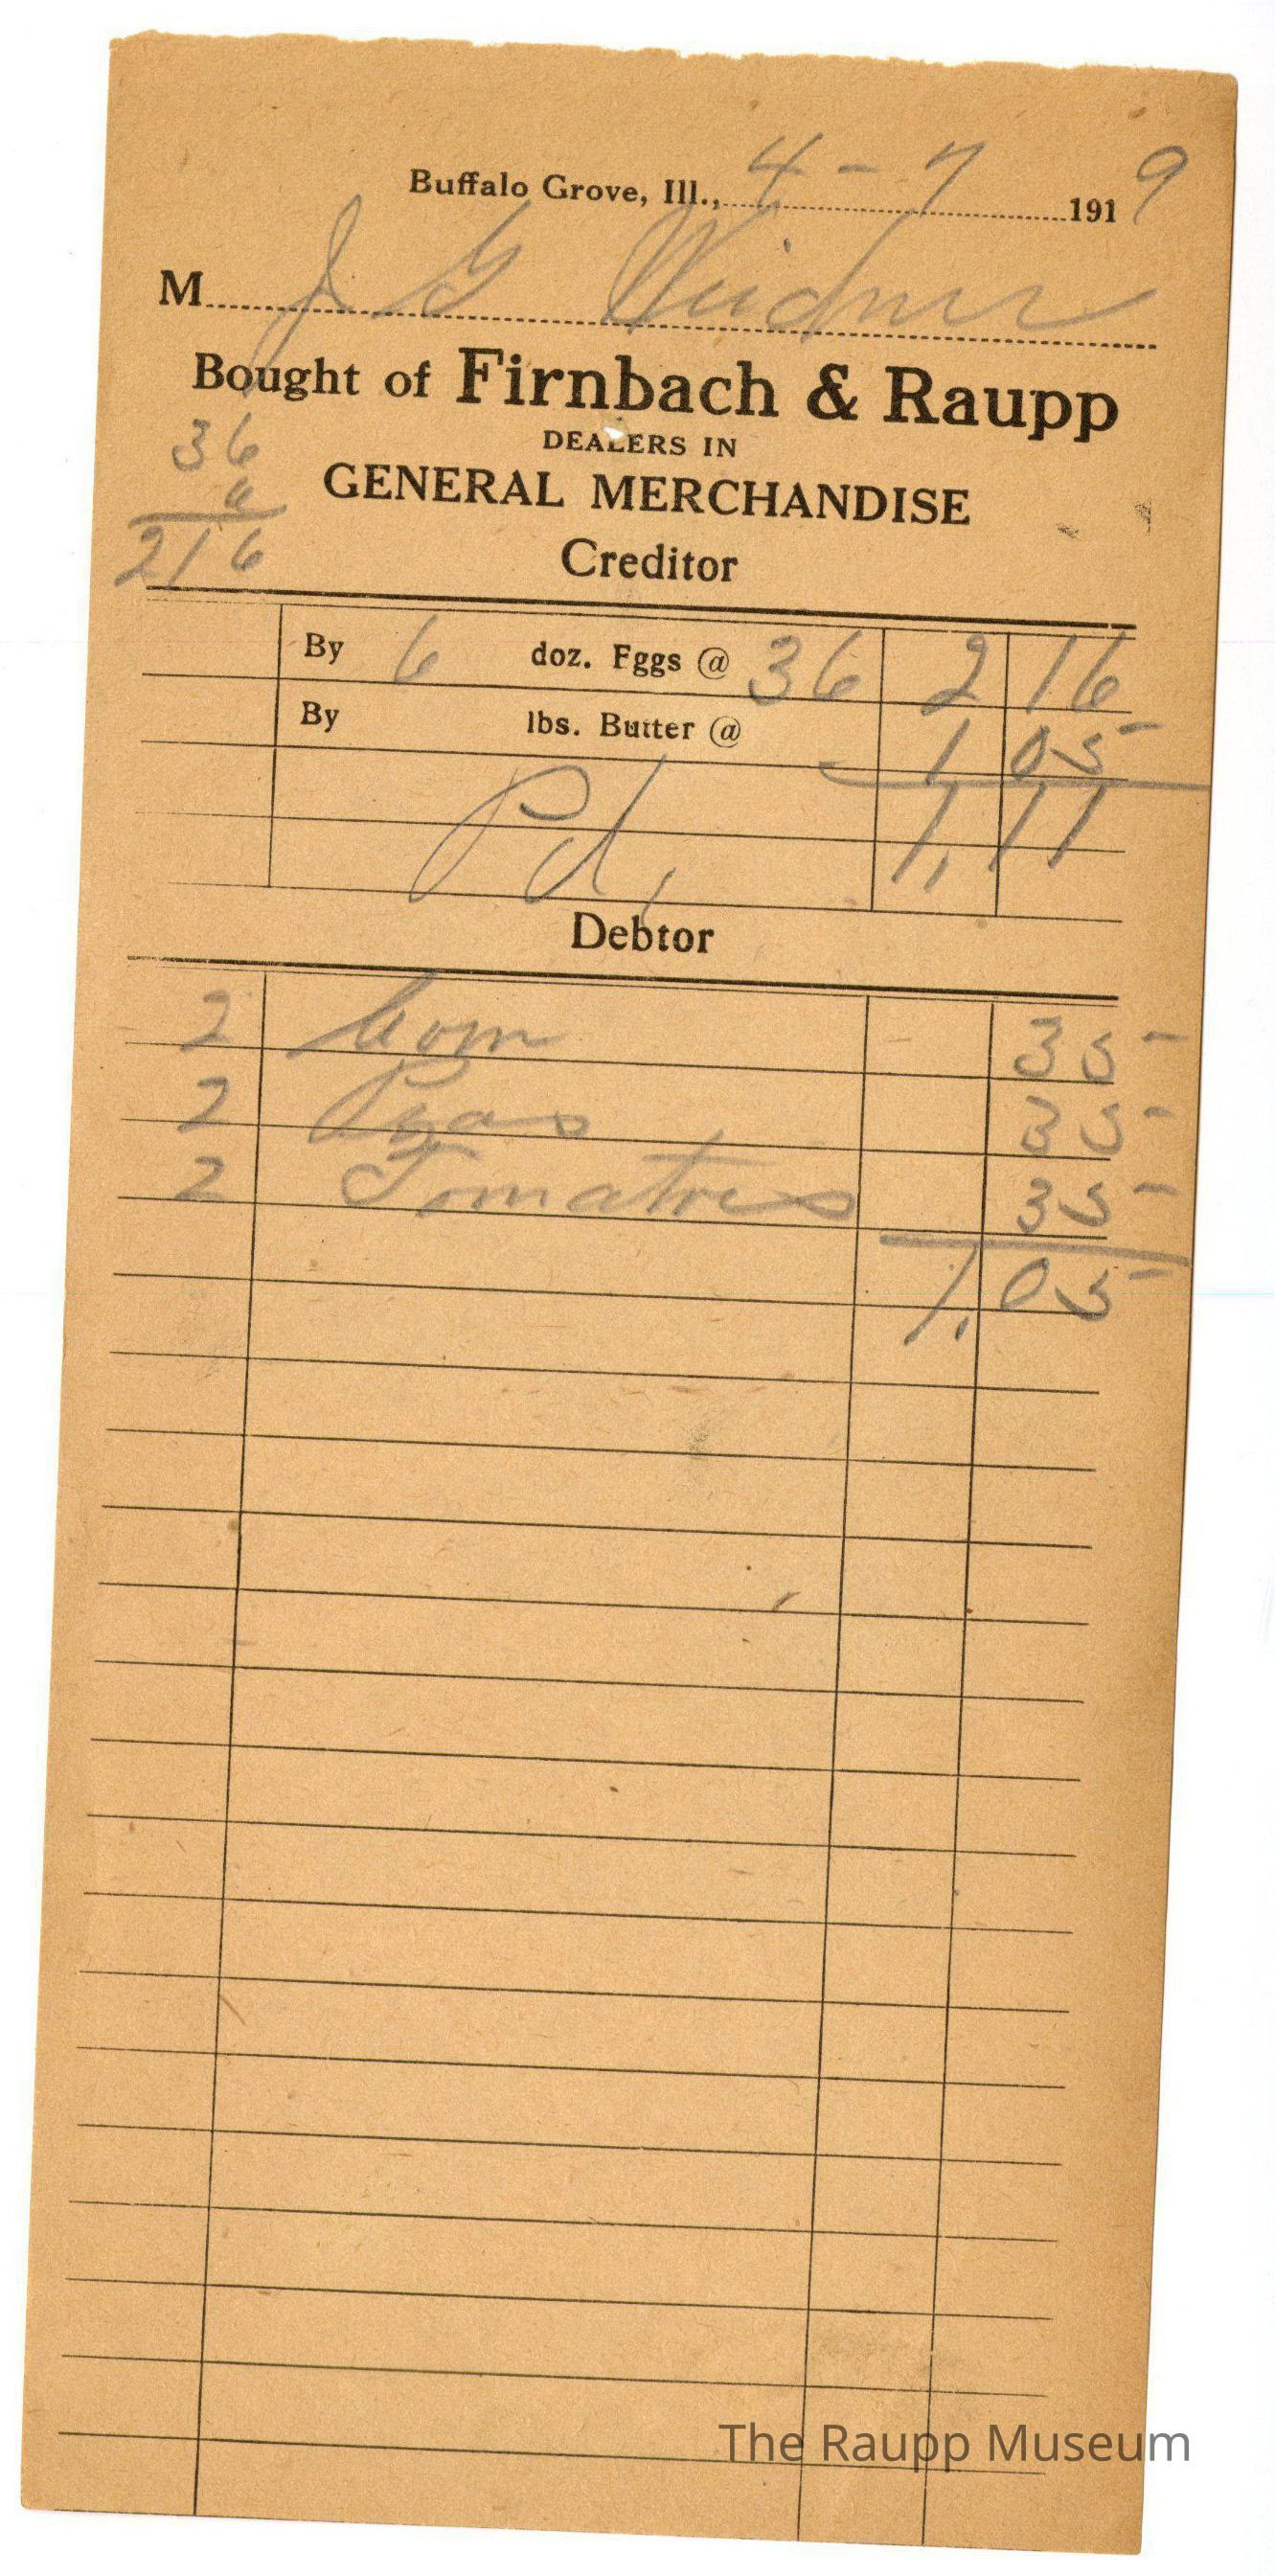 Buffalo Grove, Ill., 4-7 1919
M J G Weidner
Bought of Firnbach & Raupp
DEALERS IN
GENERAL MERCHANDISE
36
6
216
Creditor
By 6 doz. Fggs @ 36 2 16
By lbs. Butter @ 1 05
Pd, 1,11
Debtor
2 Corn 35
2 Peas 35
2 Tomatoes 35
1,05
The Raupp Museum